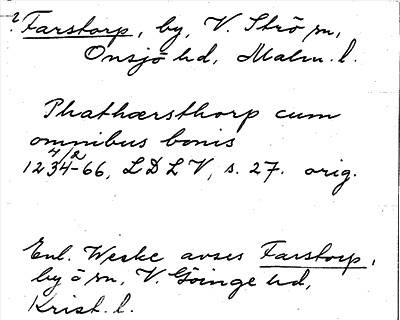 ? Farstorp, by, V. Strö sn,
Onsjö hd, Malm. l.
Phathærsthorp cum
omnibus bonis
4/2
1234-66, LDLV, s. 27. orig.
Enl. Weske avses Farstorp,
by o sn, V. Göinge hd,
Krist. l.